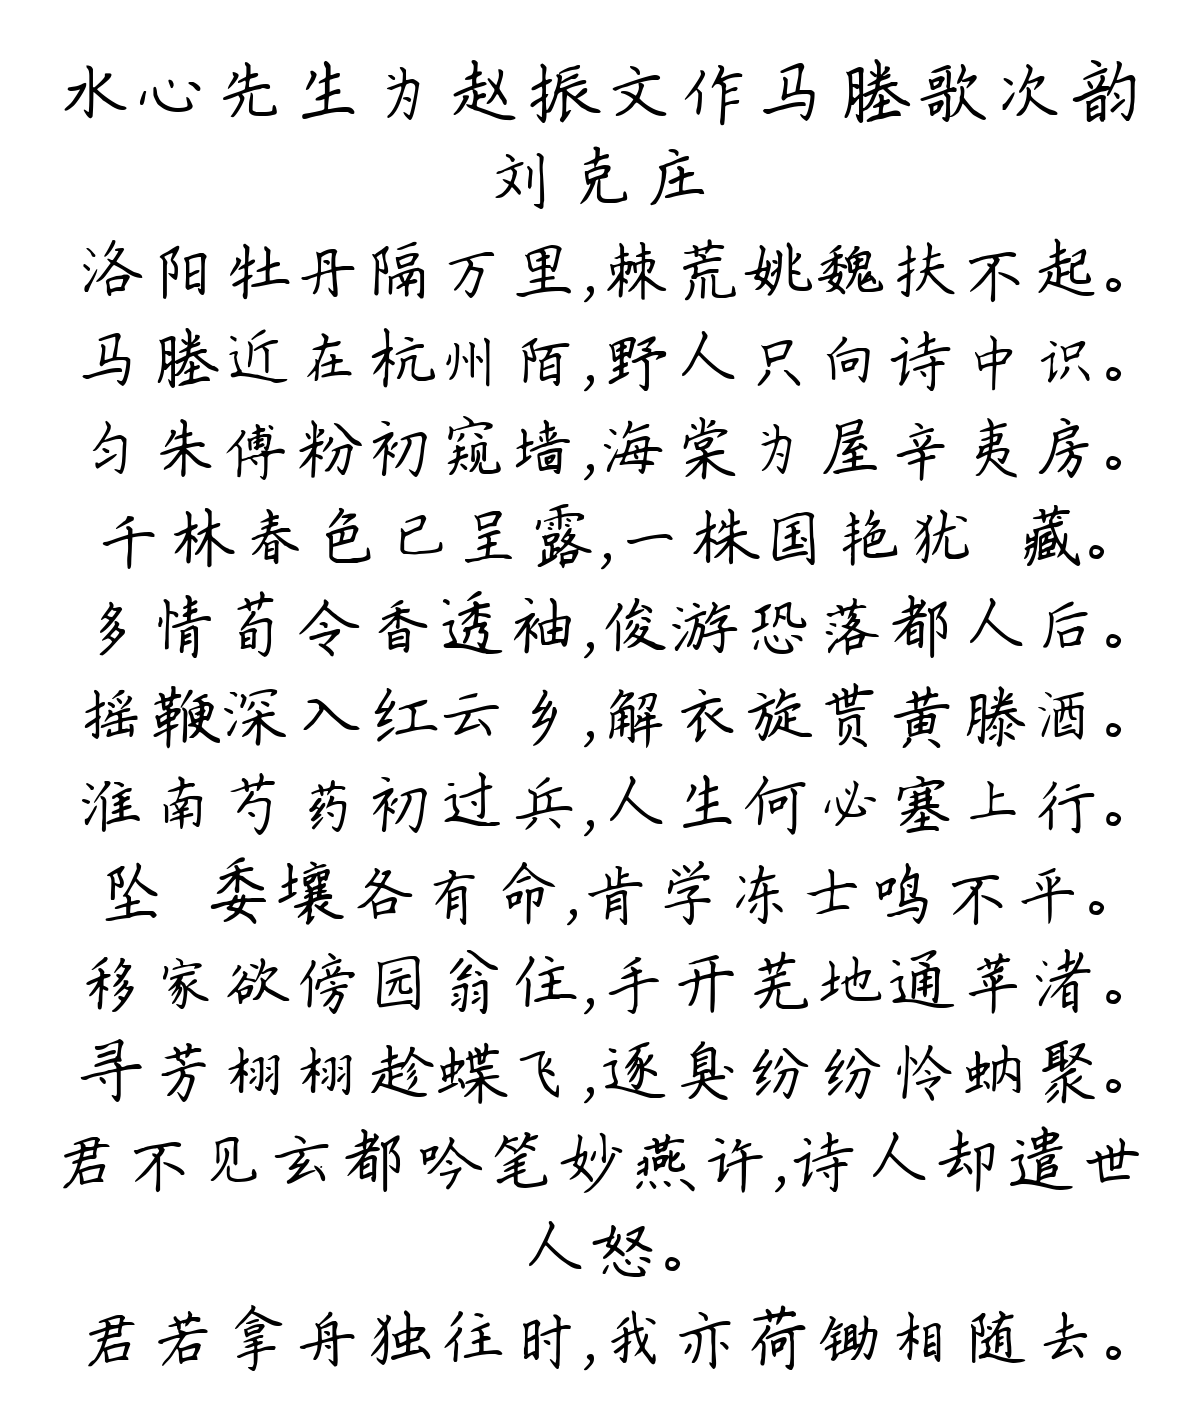 水心先生为赵振文作马塍歌次韵
刘克庄
洛阳牡丹隔万里,棘荒姚魏扶不起。
马塍近在杭州陌,野人只向诗中识。
匀朱傅粉初窥墙,海棠为屋辛夷房。
千林春色已呈露,一株国艳犹 藏。
多情荀令香透袖,俊游恐落都人后。
摇鞭深入红云乡,解衣旋贳黄滕酒。
淮南芍药初过兵,人生何必塞上行。
坠 委壤各有命,肯学冻士鸣不平。
移家欲傍园翁住,手开芜地通苹渚。
寻芳栩栩趁蝶飞,逐臭纷纷怜蚋聚。
君不见玄都吟笔妙燕许,诗人却遣世
人怒。
君若拿舟独往时,我亦荷锄相随去。